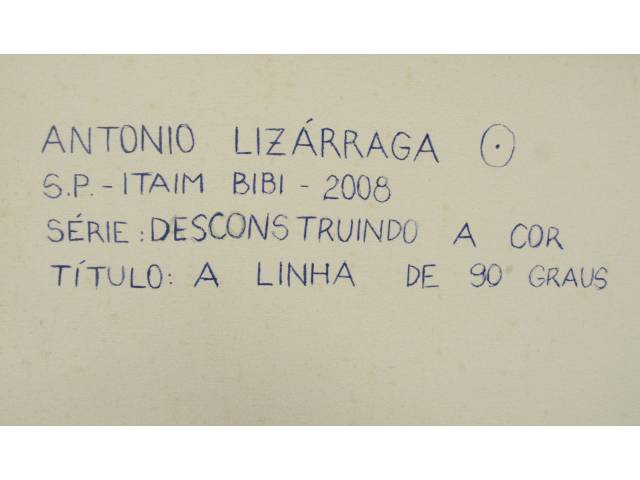 ANTONIO LIZÁRRAGA
S.P.-ITAIM BIBI - 2008
SÉRIE: DESCONSTRUINDO A COR
TÍTULO: A LINHA DE 90 GRAUS